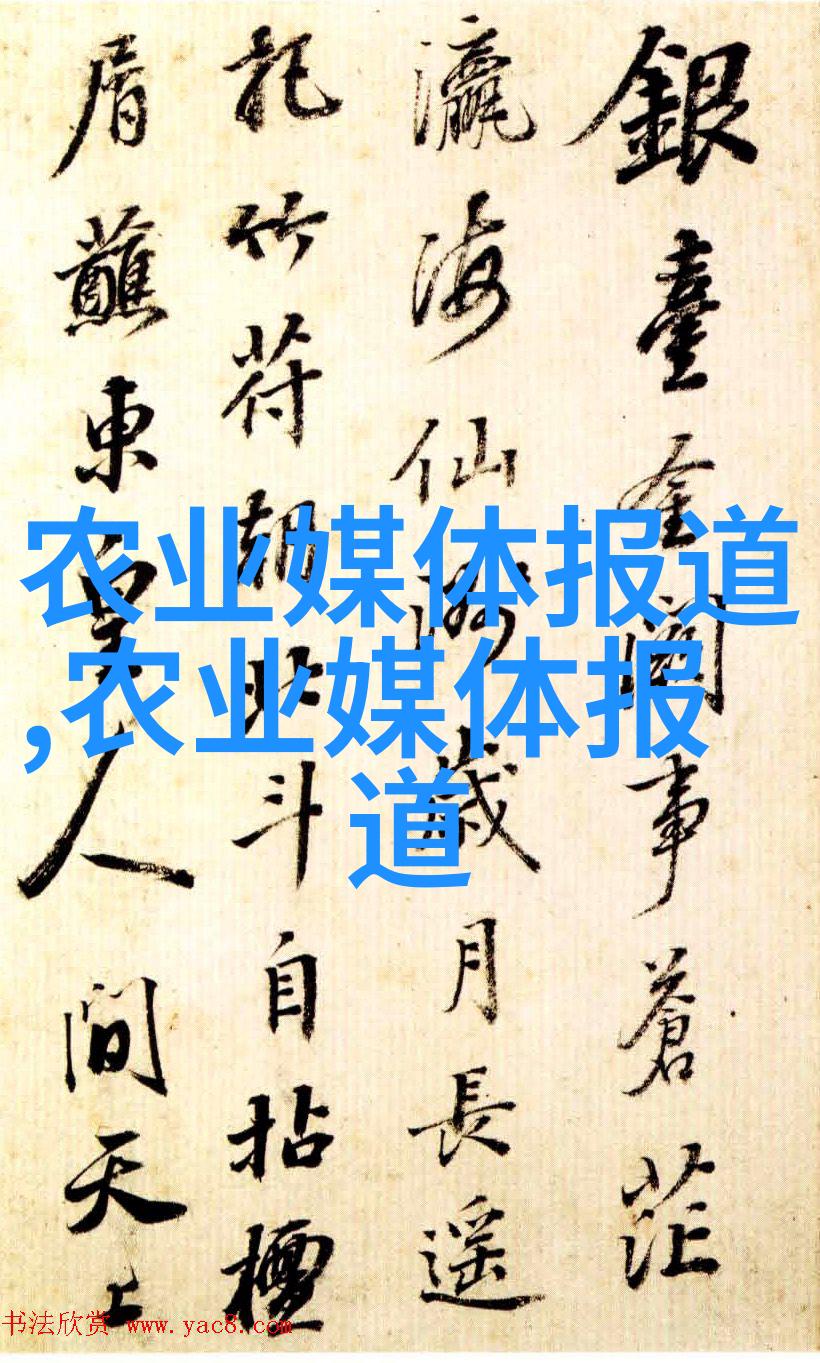 銀臺金闕事蒼茫
瀛海仙歲月長遥
記竹符朝北斗自拈檀
屑蘸東皇人間天上
农业媒体报道
,农业媒体报
道
书法欣赏 www.yac8.com